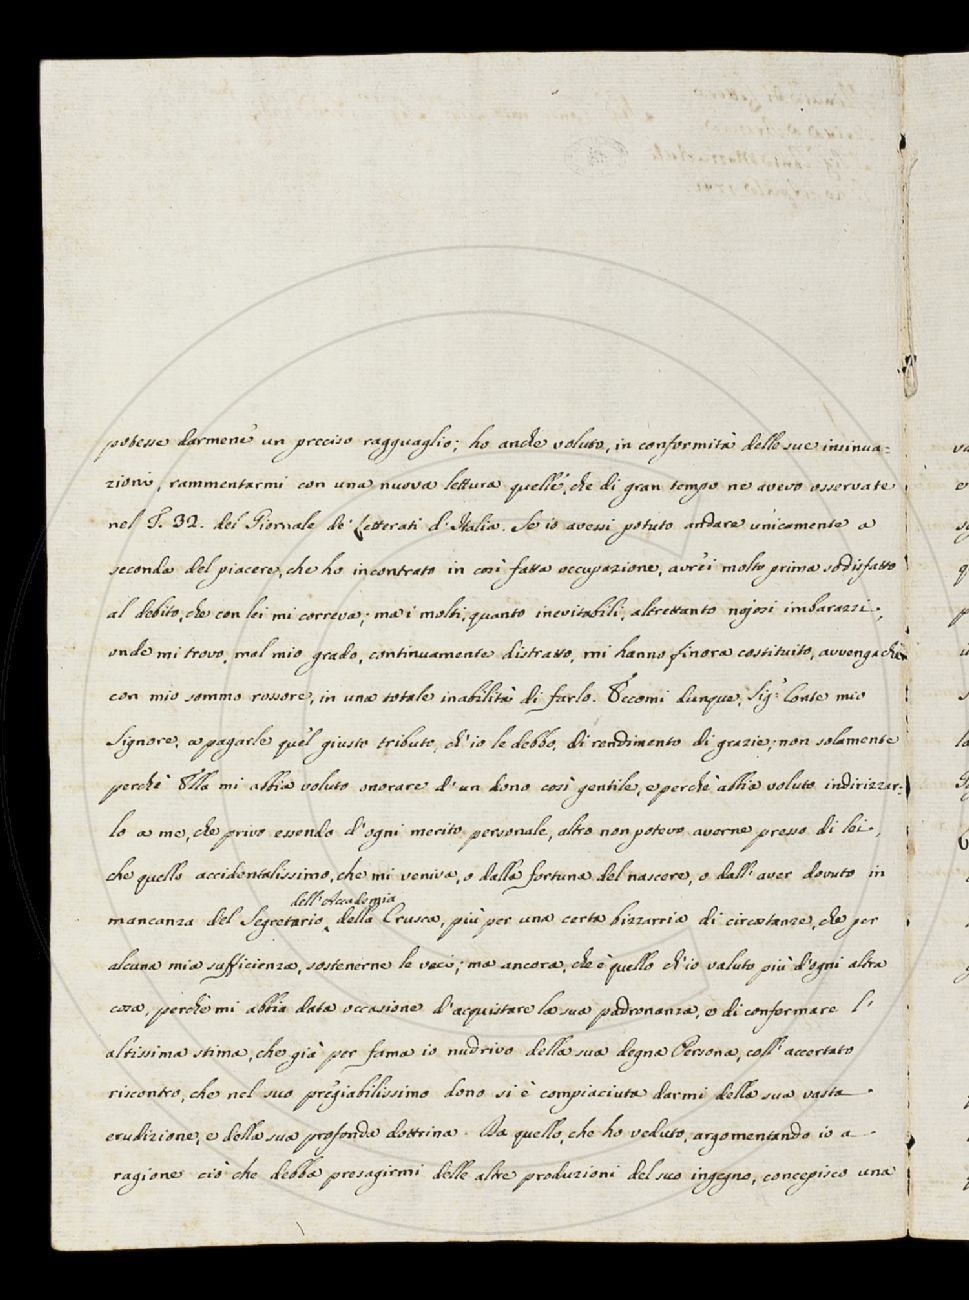 potesse darmene un preciso ragguaglio; ho anche voluto, in conformità delle sue insinua=
zioni, rammentarmi con una nuova lettura quelle, che di gran tempo ne avevo osservate
nel T. 32. del Giornale de' Letterati d'Italia. Se io avessi potuto andare unicamente a
seconda del piacere, che ho incontrato in così fatta occupazione, avrei molto prima sodisfatto
al debito, che con lei mi correva; ma i molti, quanto inevitabili, altrettanto nojosi imbarazzi,
onde mi trovo, mal mio grado, continuamente distratto, mi hanno finora costituito, avvengachè
con mio sommo rossore, in una totale inabilità di farlo. Eccomi dunque, Sig.r Conte mio
Signore, a pagarle quel giusto tributo, ch'io le debbo, di rendimento di grazie; non solamente
perchè Ella mi abbia voluto onorare d'un dono così gentile, e perchè abbia voluto indirizzar=
lo a me, che privo essendo d'ogni merito personale, altro non potevo averne presso di lei,
che quello accidentalissimo, che mi veniva, o dalla fortuna del nascere, o dall'aver dovuto in
dell'Accademia
mancanza del Segretario della Crusca, più per una certa bizzarria di circostanze, che per
alcuna mia sufficienza, sostenerne le veci; ma ancora, che è quello ch'io valuto più d'ogni altra
cosa, perchè mi abbia data occasione d'acquistare la sua padronanza, e di conformare l'
altissima stima, che già per fama io nudrivo della sua degna Persona, coll'accertato
riscontro, che nel suo pregiabilissimo dono si è compiaciuta darmi della sua vasta
erudizione, e della sua profonda dottrina. Da quello, che ho veduto, argomentando io a
ragione ciò che debba presagirmi delle altre produzioni del suo ingegno, concepisco una